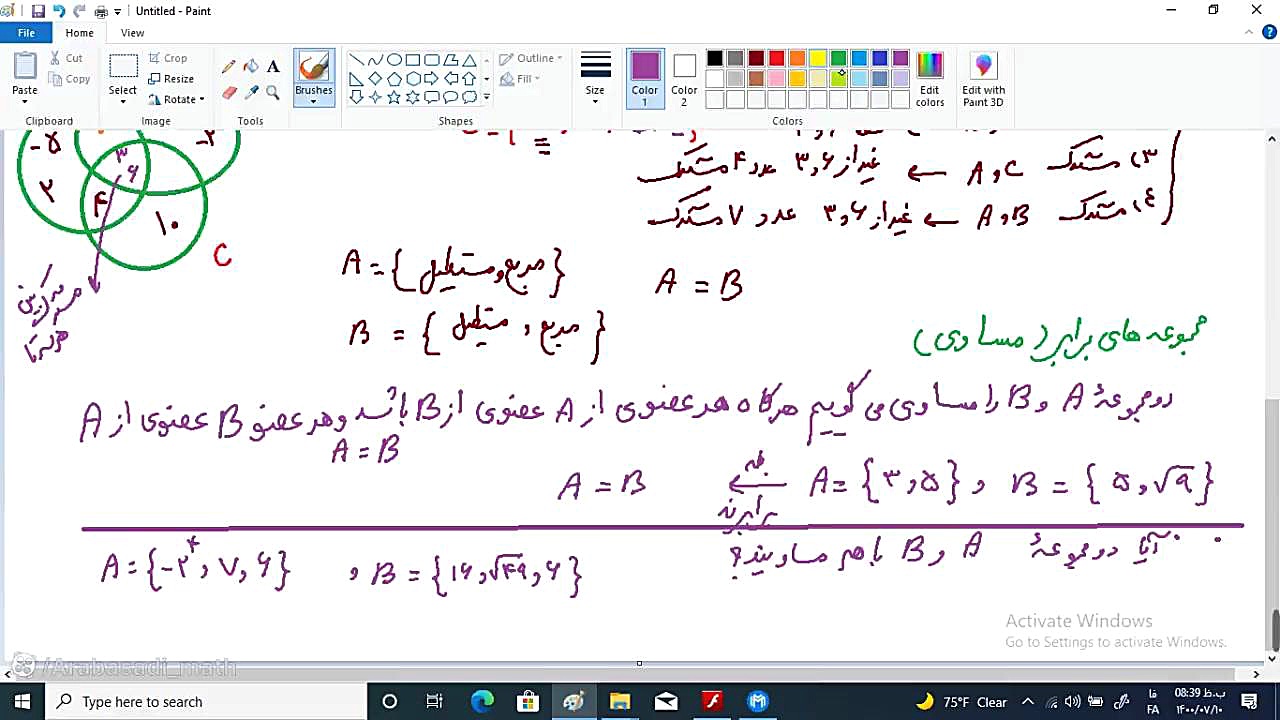 Untitled - Paint
File Home View
Paste
Cut
Copy
Clipboard
Select
Crop
Resize
Rotate
Image
Tools
Brushes
Shapes
Outline
Fill
Size
Color 1
Color 2
Colors
Edit colors
Edit with Paint 3D
-۵
-۲
۳
۶
۲
۴
۱۰
C
مشترک بین هر سه تا
۳) مشترک A و C ← غیر از ۳,۶ عدد ۴ مشترک
٤) مشترک A و B ← غیر از ۳,۶ عدد ۷ مشترک
A = {مربع و مستطیل}
A = B
B = {مربع , مستطیل}
مجموعه های برابر (مساوی)
دو مجموعهٔ A و B را مساوی می گوییم هرگاه هر عضوی از A عضوی از B باشد و هر عضو B عضوی از A
A = B
A = {۳,۵} , B = {۵,√۹} ← بله برابرند A = B
آیا دو مجموعهٔ A و B با هم مساویند؟
A = {-۲^۴, ۷, ۶} , B = {۱۶,√۴۹,۶}
Activate Windows
Go to Settings to activate Windows.
/Arabasadi_math
Type here to search
75°F Clear
فا
FA
08:39 ب.ظ
۱۴۰۰/۰۷/۱۰